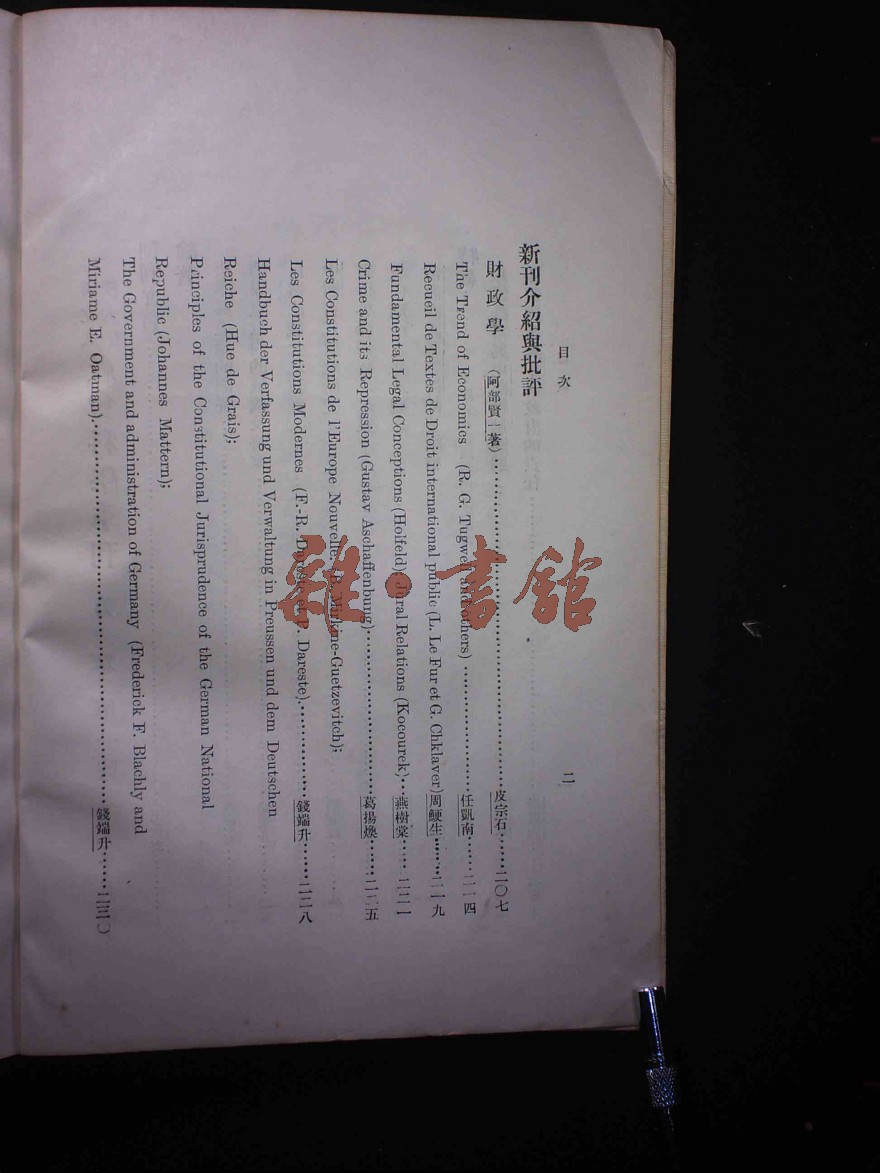 目次
二
新刊介紹與批評
財政學 (阿部賢一著)……皮宗石……二〇七
The Trend of Economics (R. G. Tugwell and others)……任凱南……二一四
Recueil de Textes de Droit international public (L. Le Fur et G. Chklaver) 周鯁生……二一九
Fundamental Legal Conceptions (Holfeld); Jural Relations (Kocourek)…燕樹棠……
Crime and its Repression (Gustav Aschaffenburg)……葛揚煥……
Les Constitutions de l'Europe Nouvelle. (B. Mirkine-Guetzevitch);
Les Constitutions Modernes (F.-R. Dareste et P. Dareste)……錢端升……二二八
Handbuch der Verfassung und Verwaltung in Preussen und dem Deutschen
Reiche (Hue de Grais);
Principles of the Constitutional Jurisprudence of the German National
Republic (Johannes Mattern);
The Government and administration of Germany (Frederick F. Blachly and
Miriame E. Oatman)……錢端升……
雜·書館